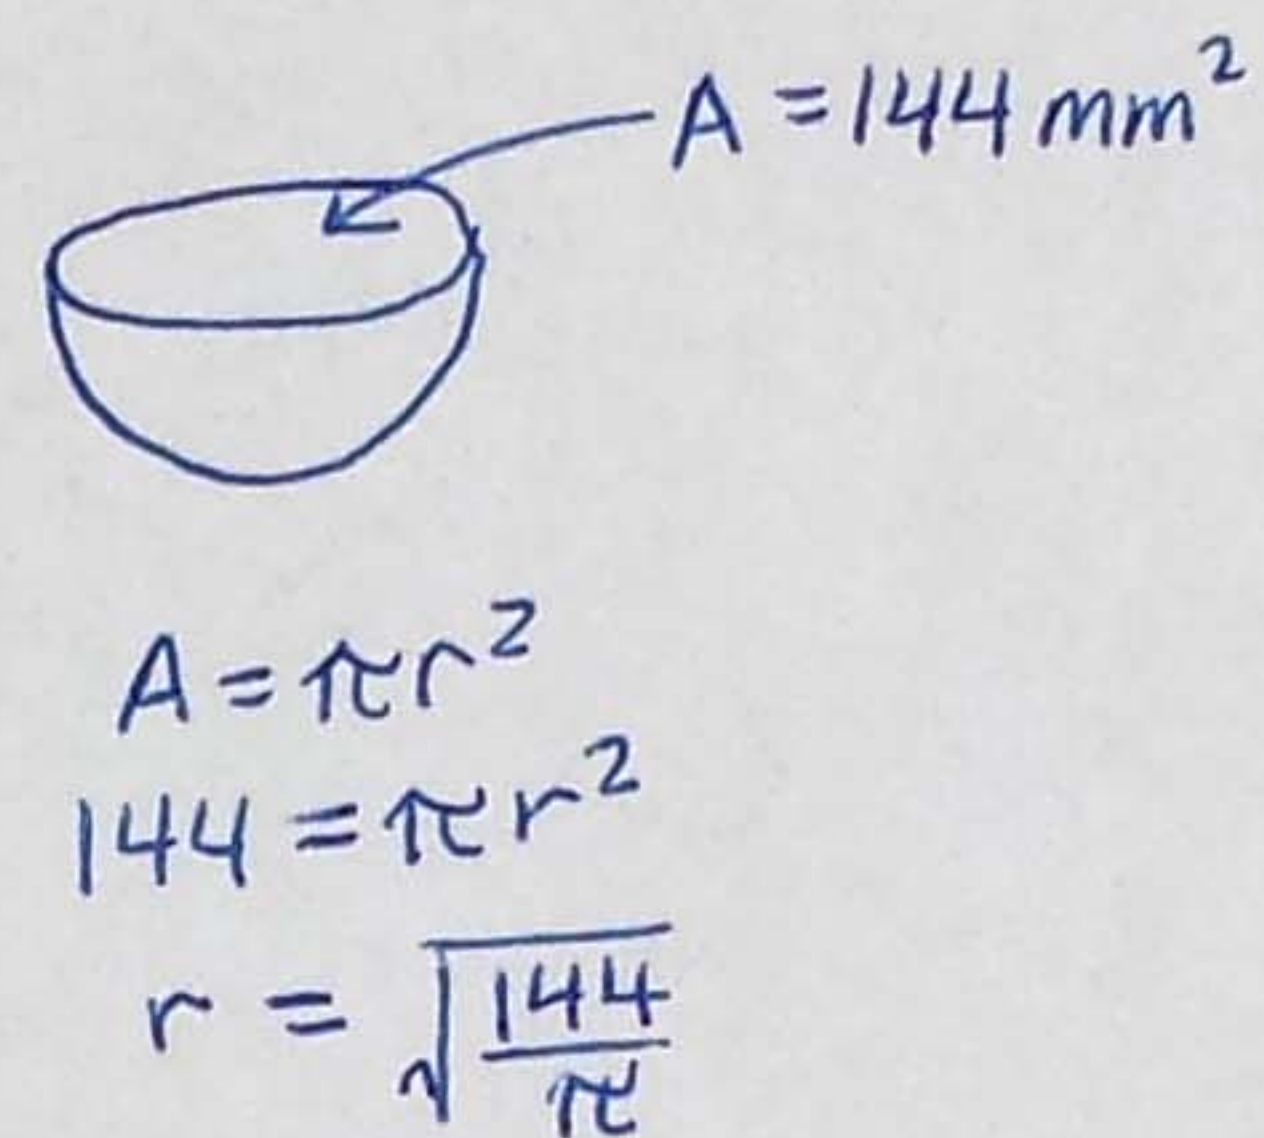 A = 144 mm²
A = πr²
144 = πr²
r = √(144/π)